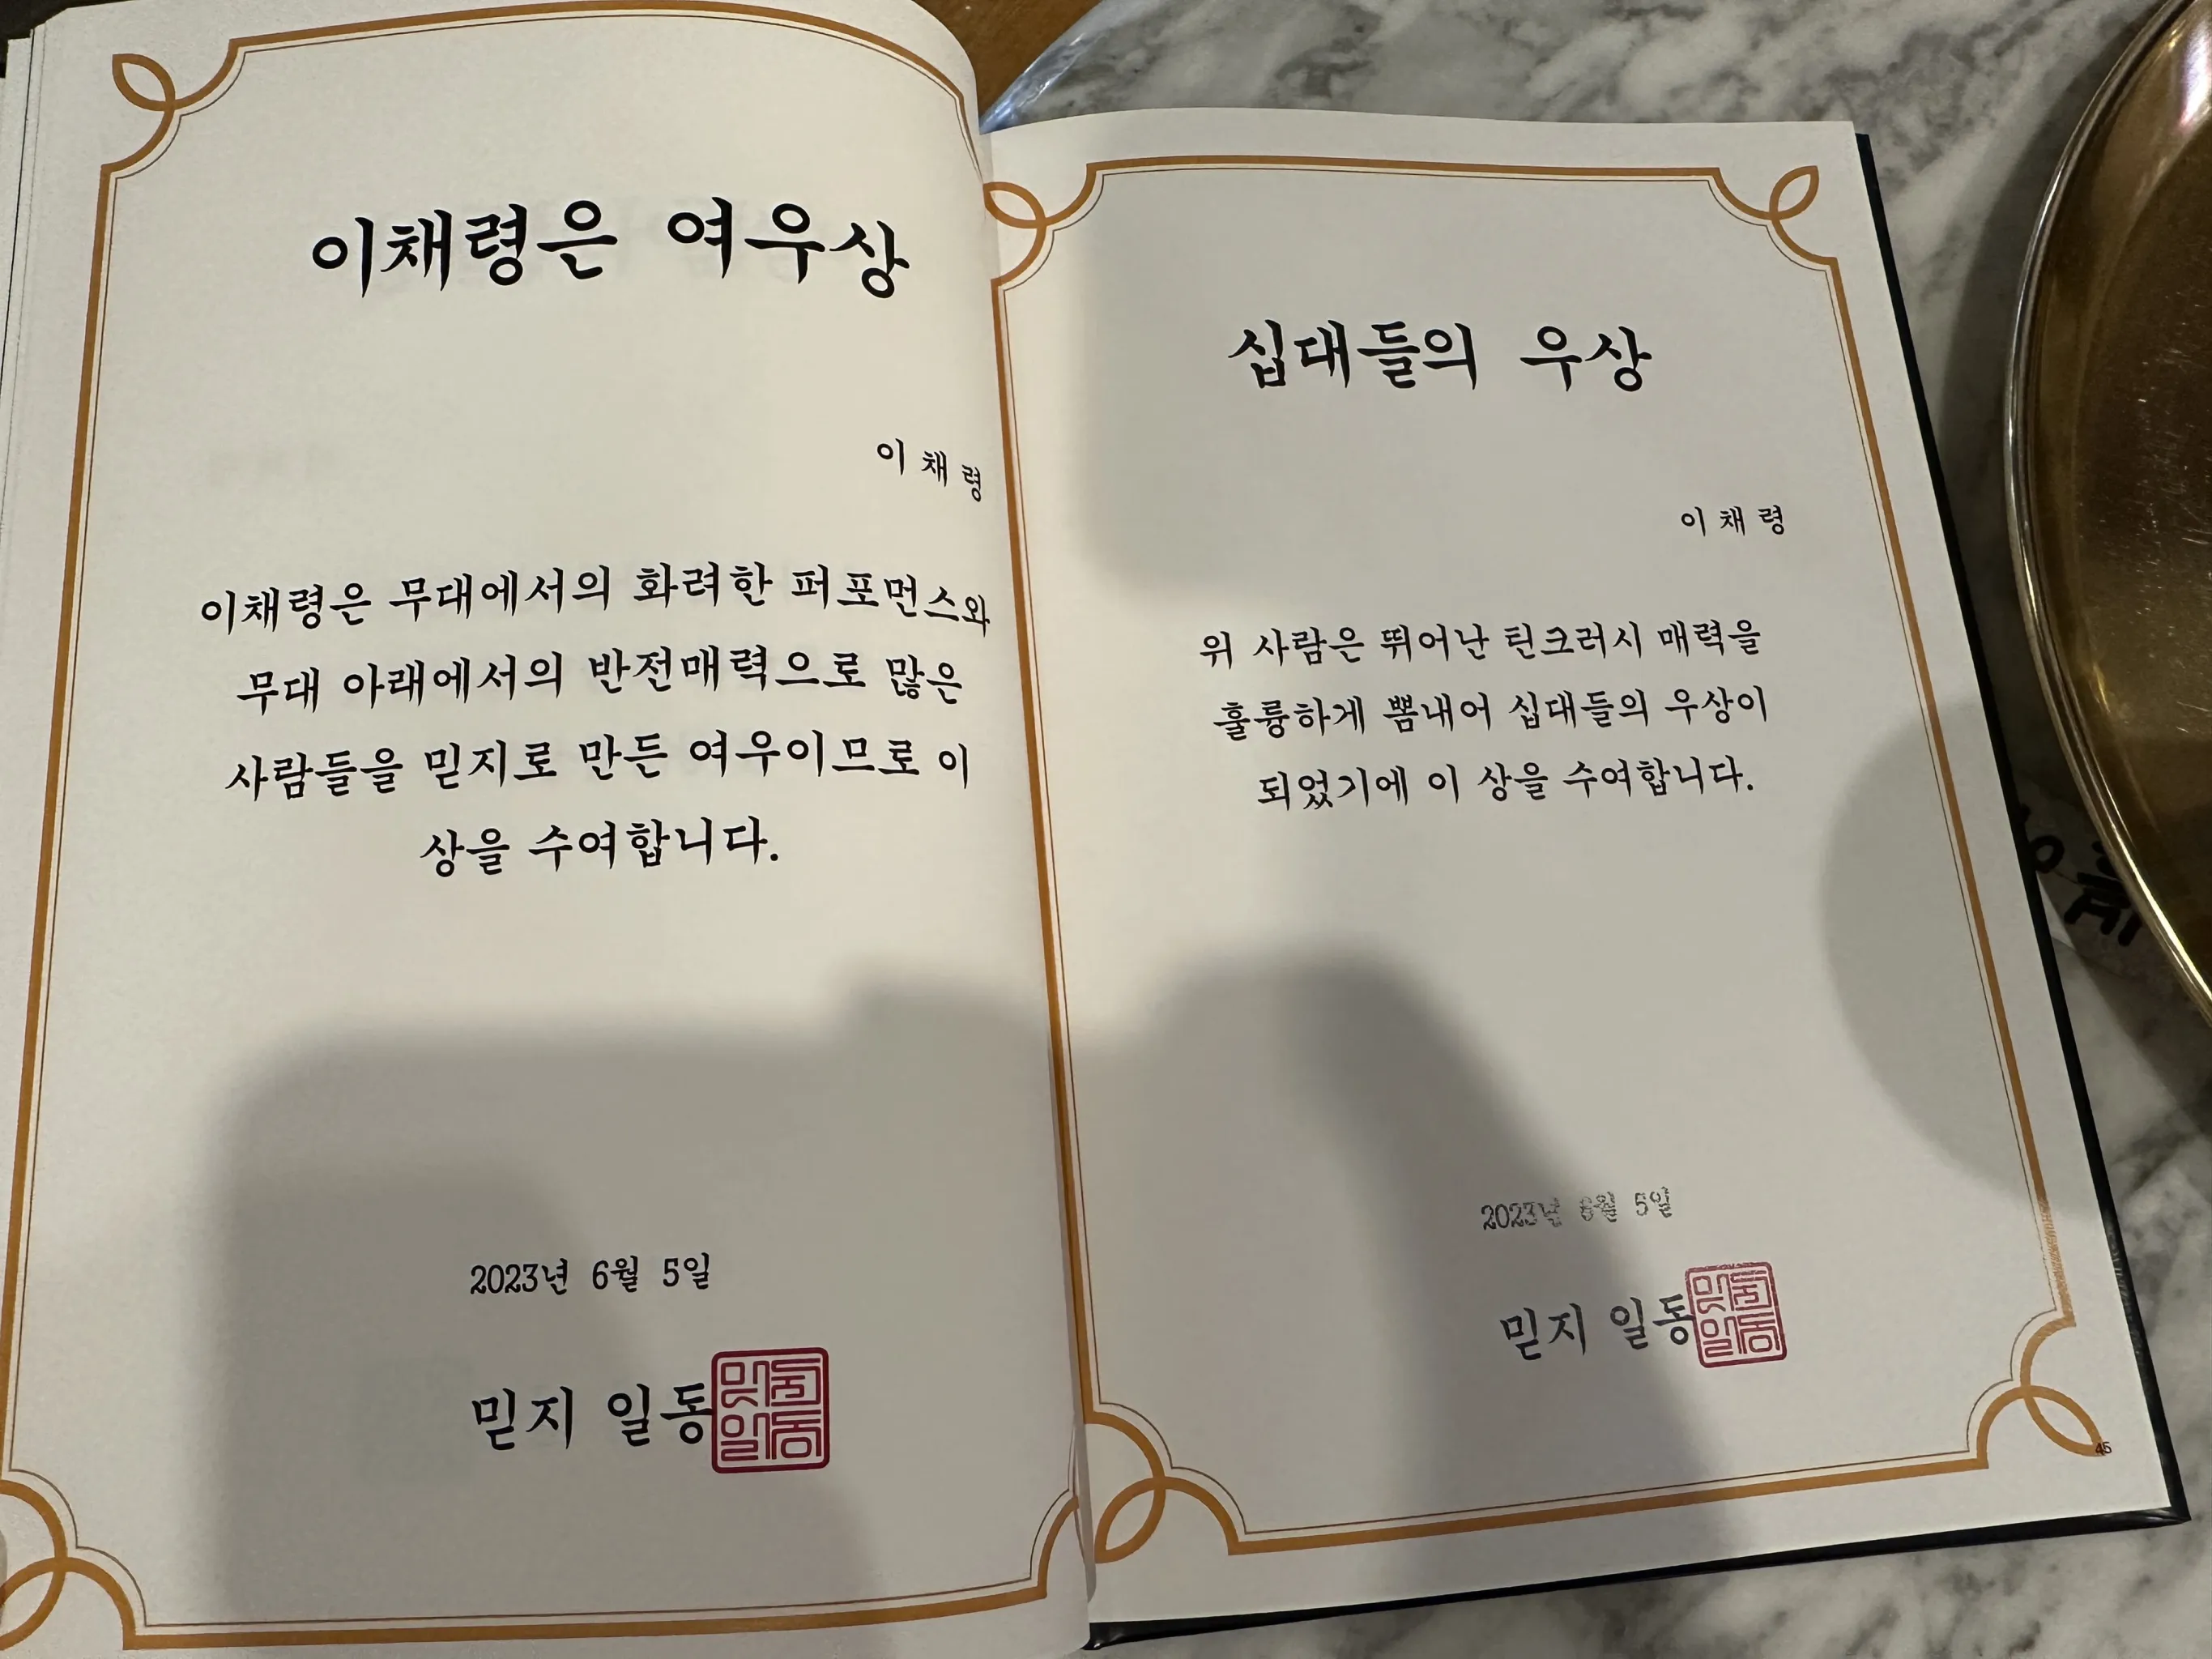 이채령은 여우상
이 채 령
이채령은 무대에서의 화려한 퍼포먼스와
무대 아래에서의 반전매력으로 많은
사람들을 믿지로 만든 여우이므로 이
상을 수여합니다.
2023년 6월 5일
믿지 일동
십대들의 우상
이 채 령
위 사람은 뛰어난 틴크러시 매력을
훌륭하게 뽐내어 십대들의 우상이
되었기에 이 상을 수여합니다.
2023년 6월 5일
믿지 일동
45